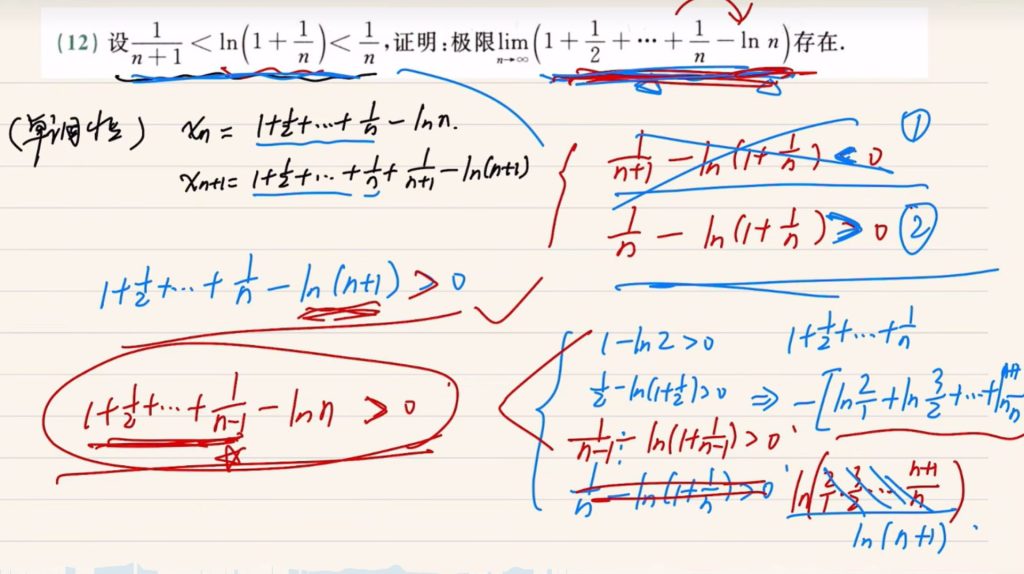 (12) 设 1/(n+1) < ln(1+1/n) < 1/n, 证明:极限 lim n→∞ (1+1/2+⋯+1/n−ln n) 存在.
(单调性) xn = 1+1/2+⋯+1/n − ln n.
xn+1 = 1+1/2+⋯+1/n+1/(n+1) − ln(n+1)
1/(n+1) − ln(1+1/n) < 0 ①
1/n − ln(1+1/n) > 0 ②
1+1/2+⋯+1/n − ln(n+1) > 0
1+1/2+⋯+1/(n-1) − ln n > 0
1−ln2>0 1+1/2+⋯+1/n
1/2−ln(1+1/2)>0 ⇒ −[ln 2/1+ln 3/2+⋯+ln (n+1)/n
1/(n-1) − ln(1+1/(n-1))>0
1/n − ln(1+1/n)>0 ln(2/1·3/2⋯(n+1)/n)
ln(n+1)